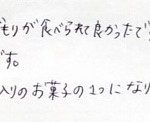 もりが食べられて良かったで
す。
入りのお菓子の1つになり